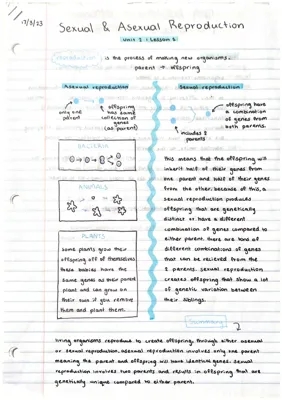 17/3/23
Sexual & Asexual Reproduction
Unit 2 | Lesson 6
Reproduction is the process of making new organisms.
parent → offspring
Asexual reproduction
only one
parent
offspring
has same
collection of
genes
(as parent)
BACTERIA
ANIMALS
PLANTS
Some plants grow their
offspring off of themselves
these babies have the
same genes as their parent
plant and can grow on
their own if you remove
them and plant them.
Sexual reproduction
offspring have
a combination
of genes from
both parents.
includes 2
parents
this means that the offspring will
inherit half of their genes from
one parent and half of their genes
from the other. because of this, a
sexual reproduction produces
offspring that are genetically
distinct or have a different
combination of genes compared to
either parent. there are tons of
different combinations of genes
that can be recieved from the
2 parents. sexual reproduction
creates offspring that show a lot
of genetic variation between
their siblings.
Summary
living organisms reproduce to create offspring, through either asexual
or sexual reproduction. asexual reproduction involves only one parent
meaning the parent and offspring will have identical genes. sexual
reproduction involves two parents and results in offspring that are
genetically unique compared to either parent.